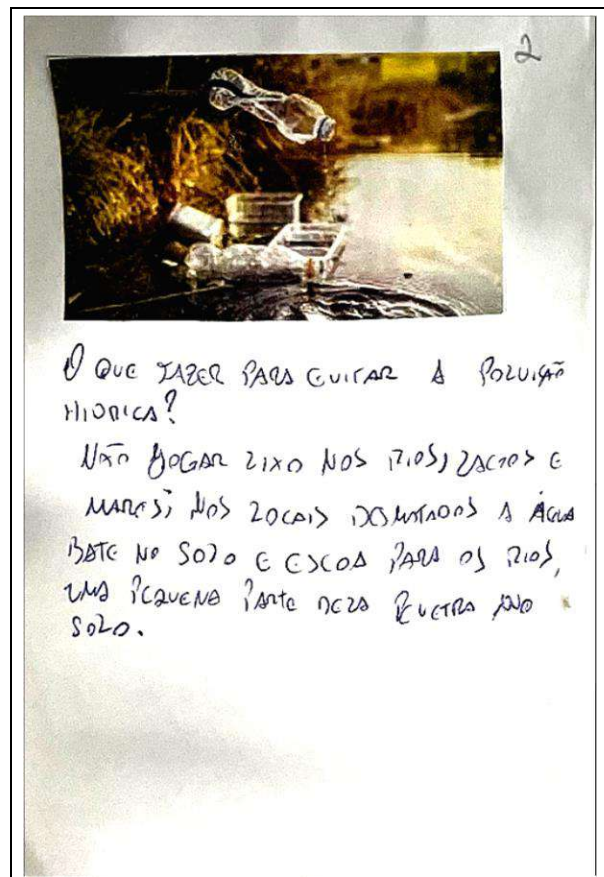 2
O QUE FAZER PARA EVITAR A POLUIÇÃO
HIDRICA?
NÃO JOGAR LIXO NOS RIOS, LAGOS E
MARES; NOS LOCAIS DESMATADOS A ÁGUA
BATE NO SOLO E ESCOA PARA OS RIOS,
UMA PEQUENA PARTE DELA PENETRA NO
SOLO.